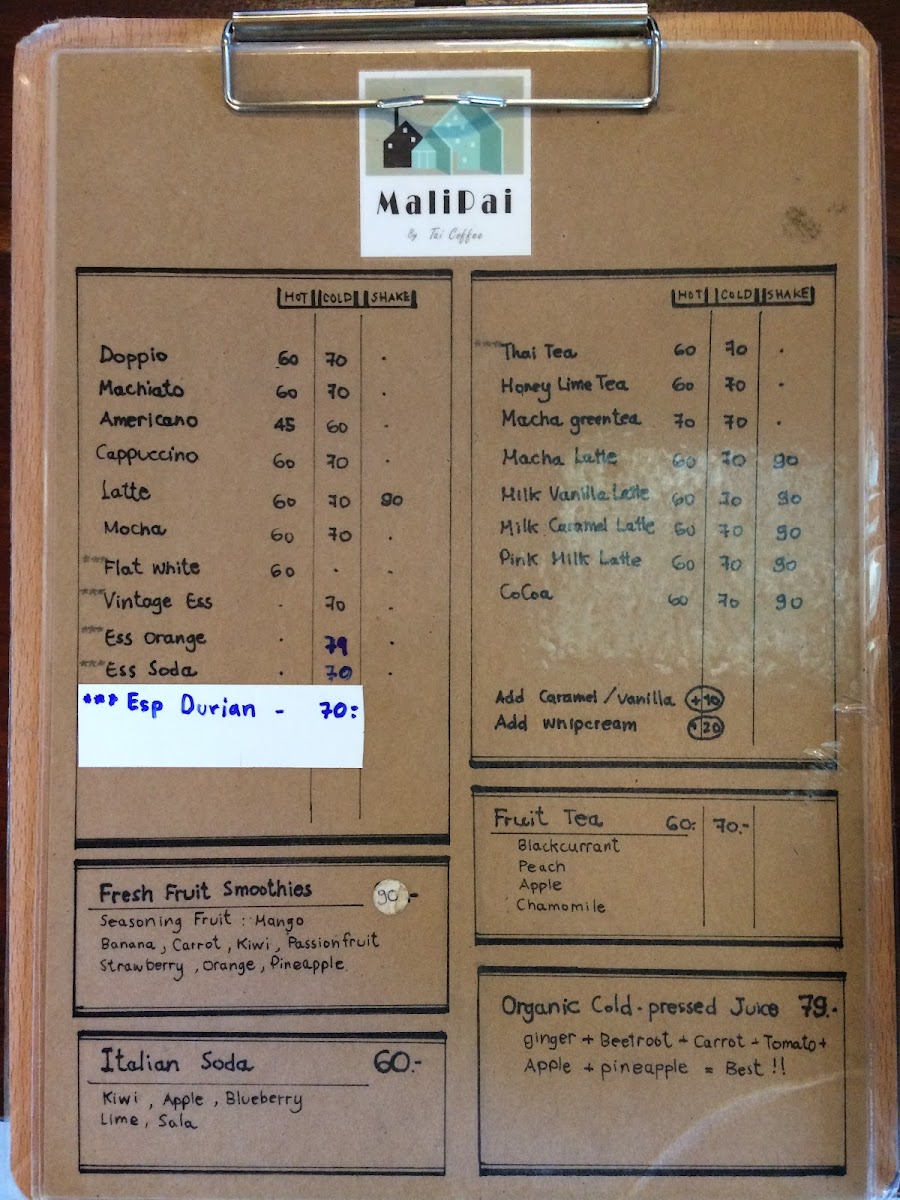 MaliPai
By Tai Coffee
HOT COLD SHAKE
Doppio 60 70 .
Machiato 60 70 .
Americano 45 60 .
Cappuccino 60 70 .
Latte 60 70 90
Mocha 60 70 .
***Flat white 60 . .
***Vintage Ess . 70 .
***Ess Orange . 79 .
***Ess Soda . 70 .
*** Esp Durian - 70:
Fresh Fruit Smoothies 90.-
Seasoning Fruit : Mango
Banana, Carrot, Kiwi, Passionfruit
Strawberry, Orange, Pineapple.
Italian Soda 60.-
Kiwi, Apple, Blueberry
Lime, Sala
HOT COLD SHAKE
***Thai Tea 60 70 .
Honey Lime Tea 60 70 .
Macha greentea 70 70 .
Macha Latte 60 70 90
Milk Vanilla Latte 60 70 90
Milk Caramel Latte 60 70 90
Pink Milk Latte 60 70 90
CoCoa 60 70 90
Add Caramel/Vanilla +10
Add whipcream +20
Fruit Tea 60: 70.-
Blackcurrant
Peach
Apple
Chamomile
Organic Cold-pressed Juice 79.-
ginger + Beetroot + Carrot + Tomato +
Apple + pineapple = Best !!